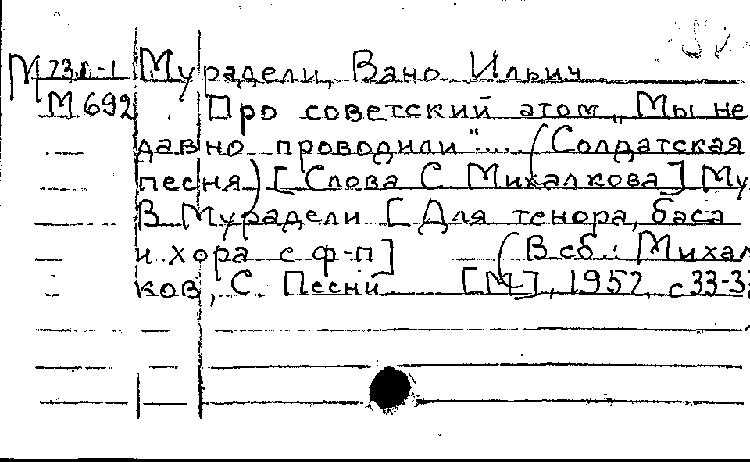 М73л-1 Мурадели, Вано Ильич
М692 Про советский атом „Мы не
давно проводили"... (Солдатская
песня) [Слова С. Михалкова] Му
В. Мурадели [Для тенора, баса
и хора с ф-п] (В сб.: Михал
ков, С. Песни [М-], 1952, с 33-3